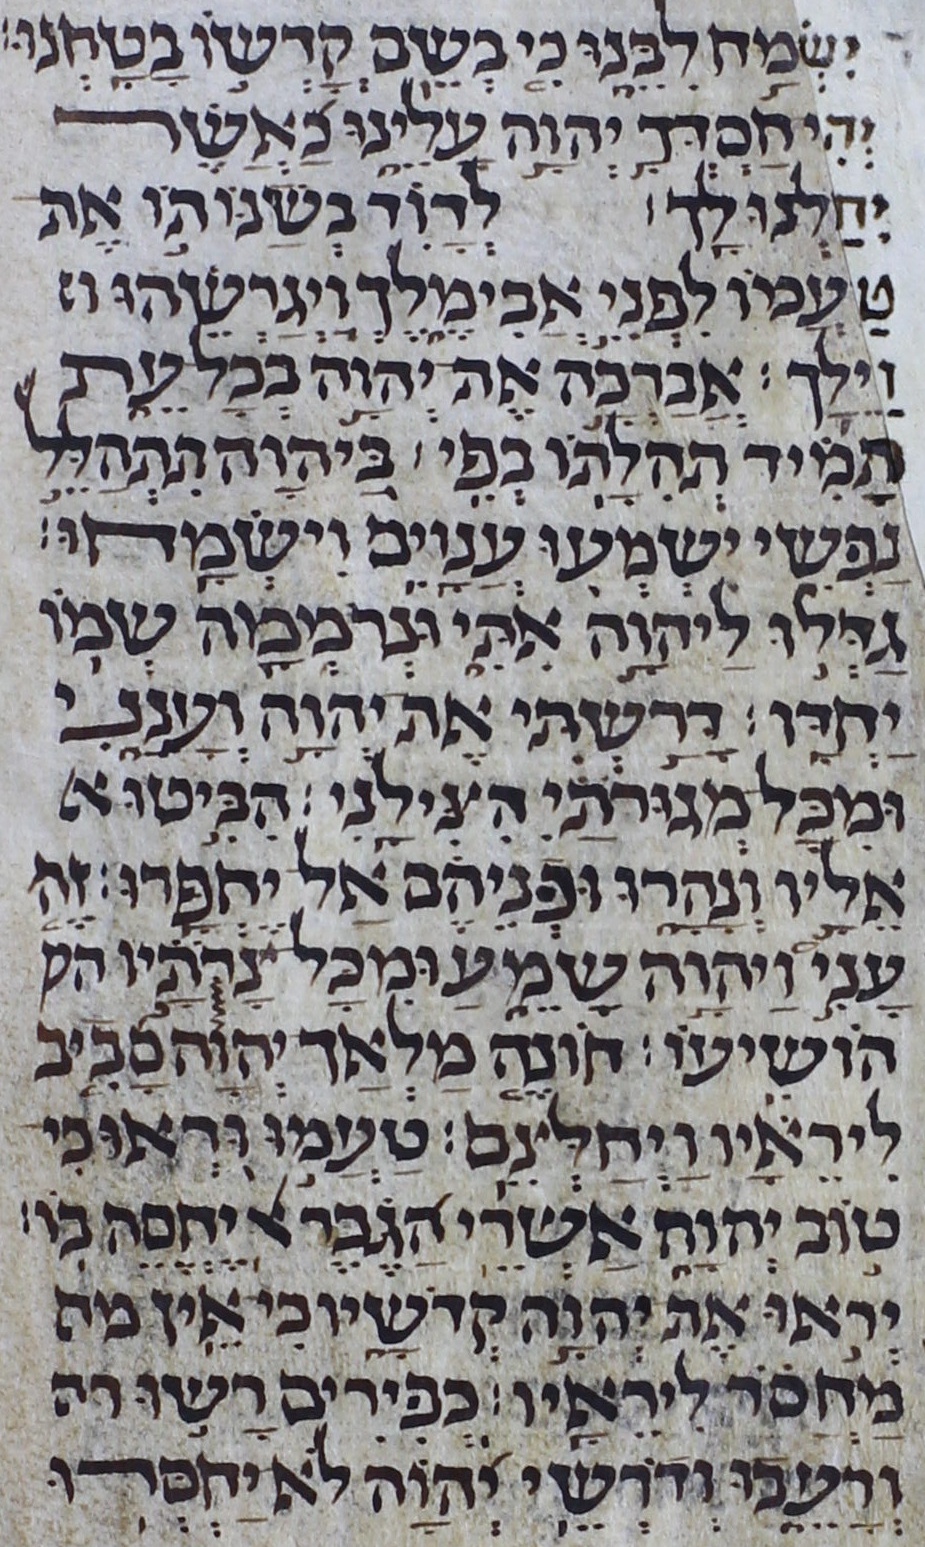 יִשְׂמַח לִבֵּנוּ כִּי בְשֵׁם קָדְשׁוֹ בָטָחְנוּ׃
יְהִי חַסְדְּךָ יְהוָה עָלֵינוּ כַּאֲשֶׁר
יִחַלְנוּ לָךְ׃ לְדָוִד בְּשַׁנּוֹתוֹ אֶת
טַעְמוֹ לִפְנֵי אֲבִימֶלֶךְ וַיְגָרֲשֵׁהוּ וי
וַיֵּלַךְ׃ אֲבָרֲכָה אֶת יְהוָה בְּכָל עֵת
תָּמִיד תְּהִלָּתוֹ בְּפִי׃ בַּיהוָה תִּתְהַלֵּל
נַפְשִׁי יִשְׁמְעוּ עֲנָוִים וְיִשְׂמָחוּ׃
גַּדְּלוּ לַיהוָה אִתִּי וּנְרוֹמְמָה שְׁמוֹ
יַחְדָּו׃ דָּרַשְׁתִּי אֶת יְהוָה וְעָנָנִי
וּמִכָּל מְגוּרֹתַי הִצִּילָנִי׃ הִבִּיטוּ א
אֵלָיו וְנָהָרוּ וּפְנֵיהֶם אַל יֶחְפָּרוּ׃ זֶה
עָנִי וַיהוָה שָׁמֵעַ וּמִכָּל צָרֹתָיו הו
הוֹשִׁיעוֹ׃ חוֹנֶה מַלְאַךְ יְהוָה סָבִיב
לִירֵאָיו וַיְחַלְּצֵם׃ טַעֲמוּ וּרְאוּ כִּי
טוֹב יְהוָה אַשְׁרֵי הַגֶּבֶר יֶחֱסֶה בּוֹ׃
יְראוּ אֶת יְהוָה קְדֹשָׁיו כִּי אֵין מח
מַחְסוֹר לִירֵאָיו׃ כְּפִירִים רָשׁוּ ור
וְרָעֵבוּ וְדֹרְשֵׁי יְהוָה לֹא יַחְסְרוּ